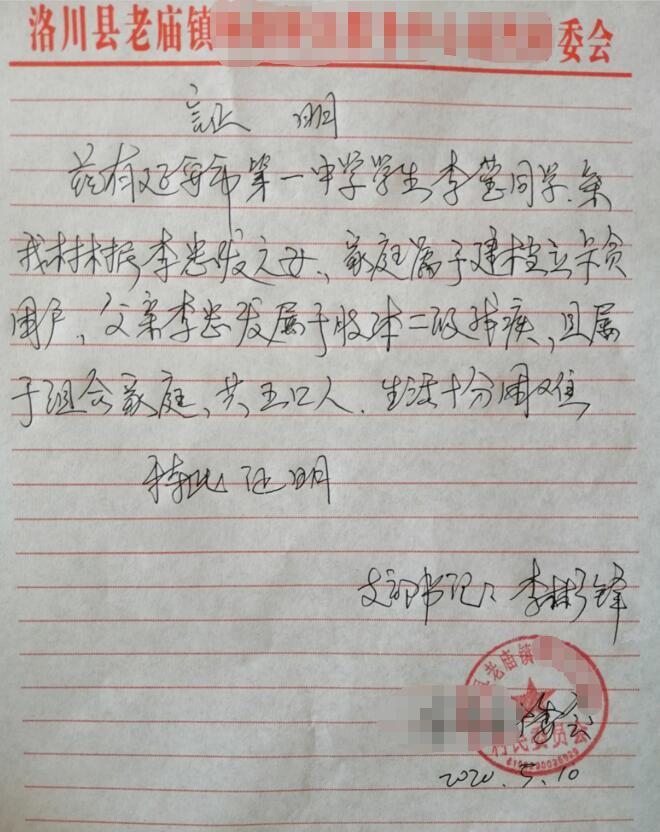 洛川县老庙镇 委会
证 明
兹有延安市第一中学学生李莹同学.系
我村村民李忠发之女、家庭属于建档立卡贫
困户,父亲李忠发属于肢体二级残疾,且属
于组合家庭、共五口人.生活十分困难
特此证明
支部书记: 李彬锋
县老庙镇
村民委员会
2020.5.10